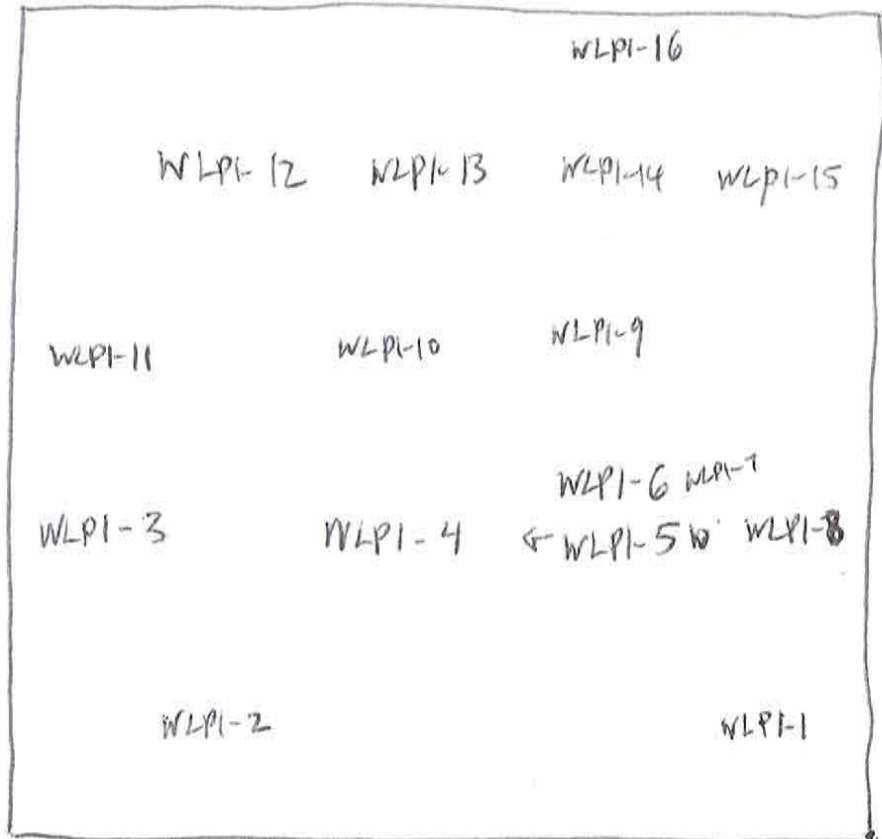 WLP1-16
WLP1-12 WLP1-13 WLP1-14 WLP1-15
WLP1-11 WLP1-10 WLP1-9
WLP1-6 WLP1-7
WLP1-3 WLP1-4 ← WLP1-5 WLP1-8
WLP1-2 WLP1-1